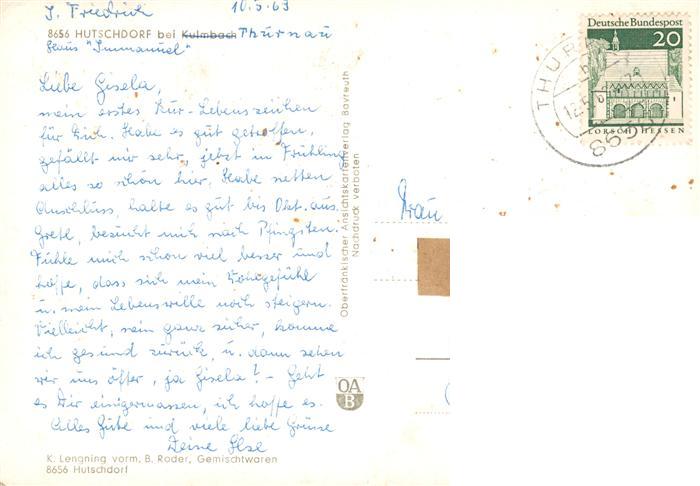 I. Friedrich 10.5.63
8656 HUTSCHDORF bei Kulmbach Thurnau
Haus "Immanuel"
Liebe Gisela,
mein erstes Kur-Lebenszeichen
für Dich. Habe es gut getroffen,
gefällt mir sehr, jetzt im Frühling
alles so schön hier. Habe netten
Anschluss, halte es gut bis Okt. aus.
Gretl, besucht mich nach Pfingsten.
Fühle mich schon viel besser und
hoffe, dass sich mein
u. mein Lebenswille noch steigern.
Vielleicht, nein ganz sicher, komme
ich gesund zurück, u. dann sehen
wir uns öfter, ja Gisela! - Geht
es Dir einigermassen, ich hoffe es.
Alles Gute und viele liebe Grüsse
Deine Ilse
K. Lengning vorm. B. Roder, Gemischtwaren
8656 Hutschdorf
Oberfränkischer Ansichtskartenverlag Bayreuth
Nachdruck verboten
OA
B
Deutsche Bundespost
20
LORSCH/HESSEN
THUR
8656
Frau